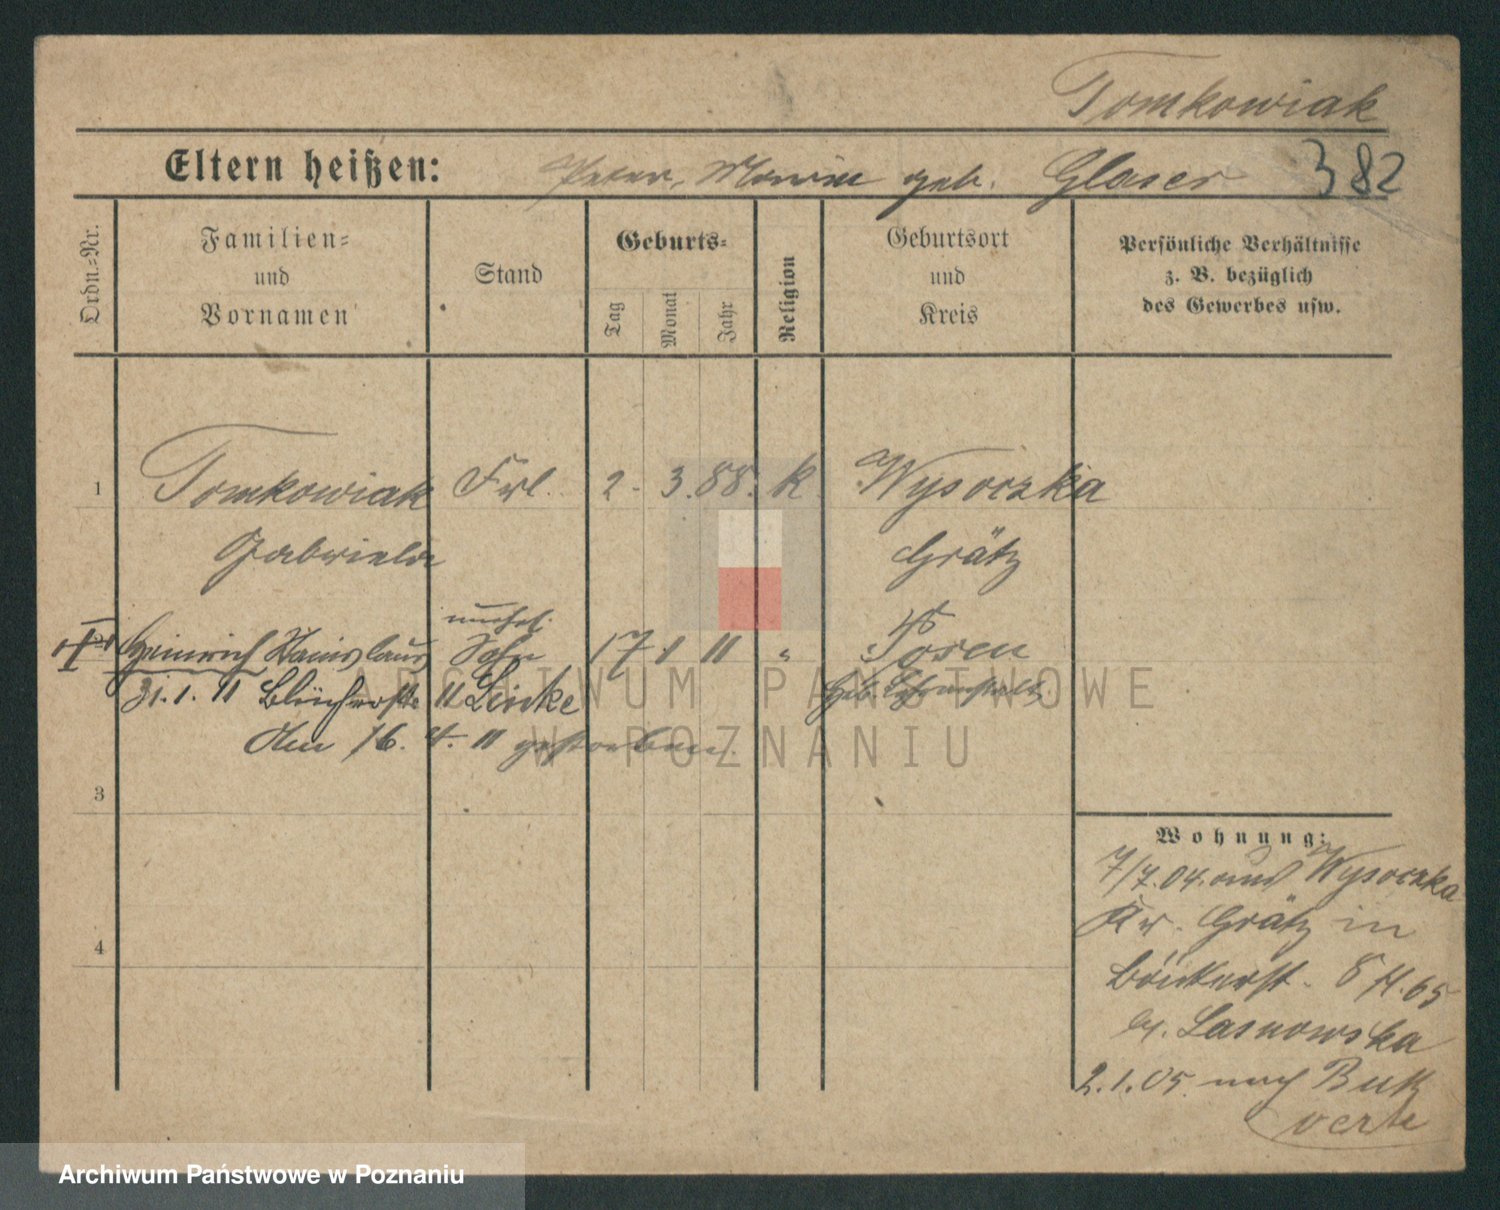 Tomkowiak
382
Eltern heißen: Peter, Marie geb. Glaser
Ordn.-Nr.
Familien- und Vornamen
Stand
Geburts-
Tag
Monat
Jahr
Religion
Geburtsort und Kreis
Persönliche Verhältnisse
z. B. bezüglich
des Gewerbes usw.
1 Tomkowiak Frl. 2. 3. 88. k Wysoczka
Gabriele Grätz
unehel.
2 Heinrich Stanislaus Sohn 17. 1 11 " Posen
31. 1. 11 Blücherstr. 11 Linke Geb.
Am 16. 4. 11 gestorben.
3
4
Wohnung:
7/7.04. aus Wysoczka
Kr. Grätz in
8 H. 65
b. Lasnowska
2.1.05. nach Buk
verte
ARCHIWUM PAŃSTWOWE
W POZNANIU
Archiwum Państwowe w Poznaniu